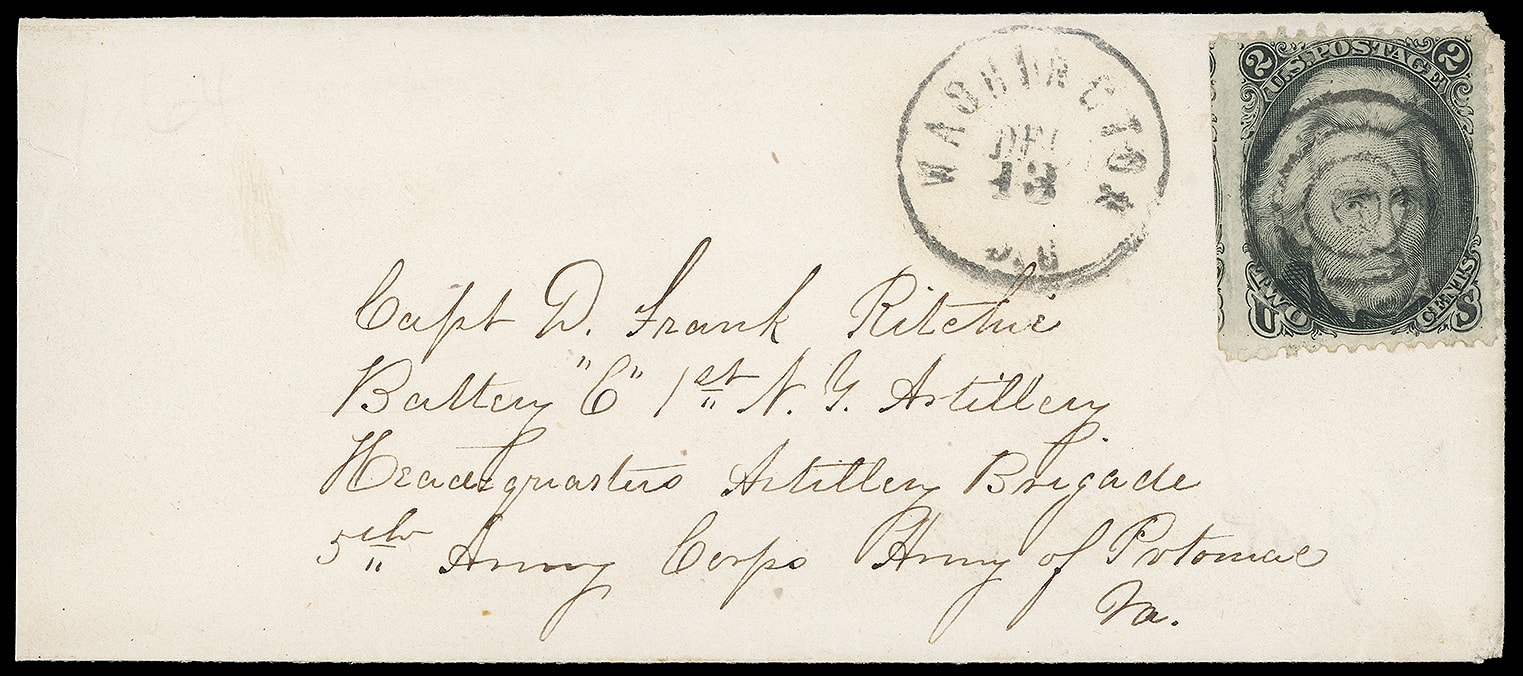 WASHINGTON
DEC
13
D.C.
2 U.S. POSTAGE 2
TWO CENTS
U S
Capt D. Frank Ritchie
Battery "C" 1st N. Y. Artillery
Headquarters Artillery Brigade
5th Army Corps Army of Potomac
Va.